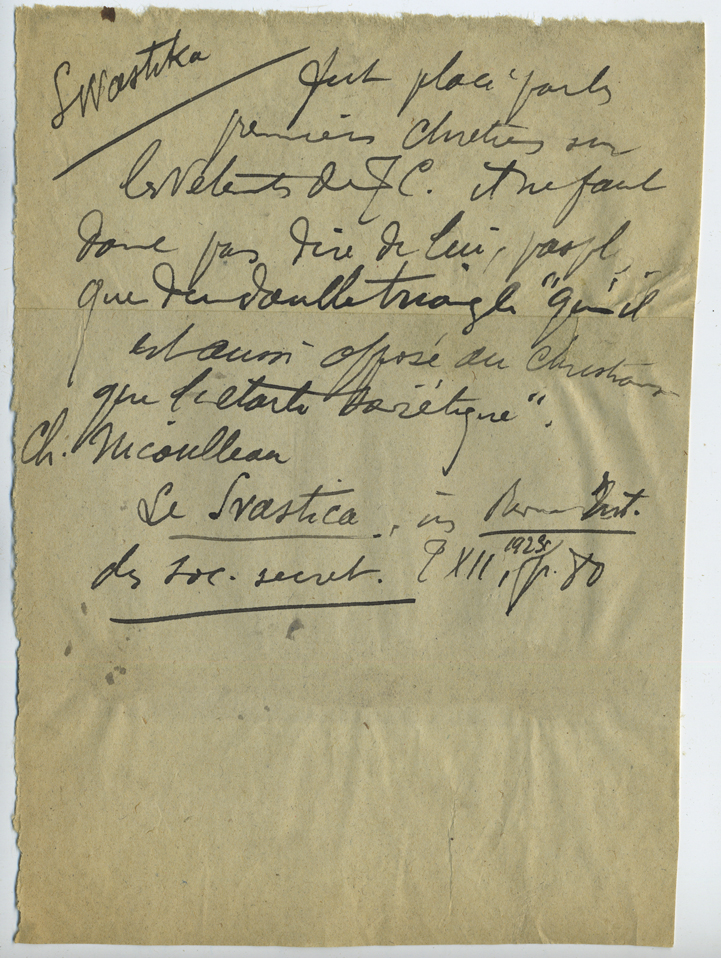 Swastika
fut placé par les
premiers chrétiens sur
les vêtements de J C. il ne faut
donc pas dire de lui,
que du double triangle "qu'il
est aussi opposé au christian
que l'étoile soviétique".
Ch. Nicoulleau
Le Svastica, in Revue Int.
des soc. secret. T XII, 1923, p. 80